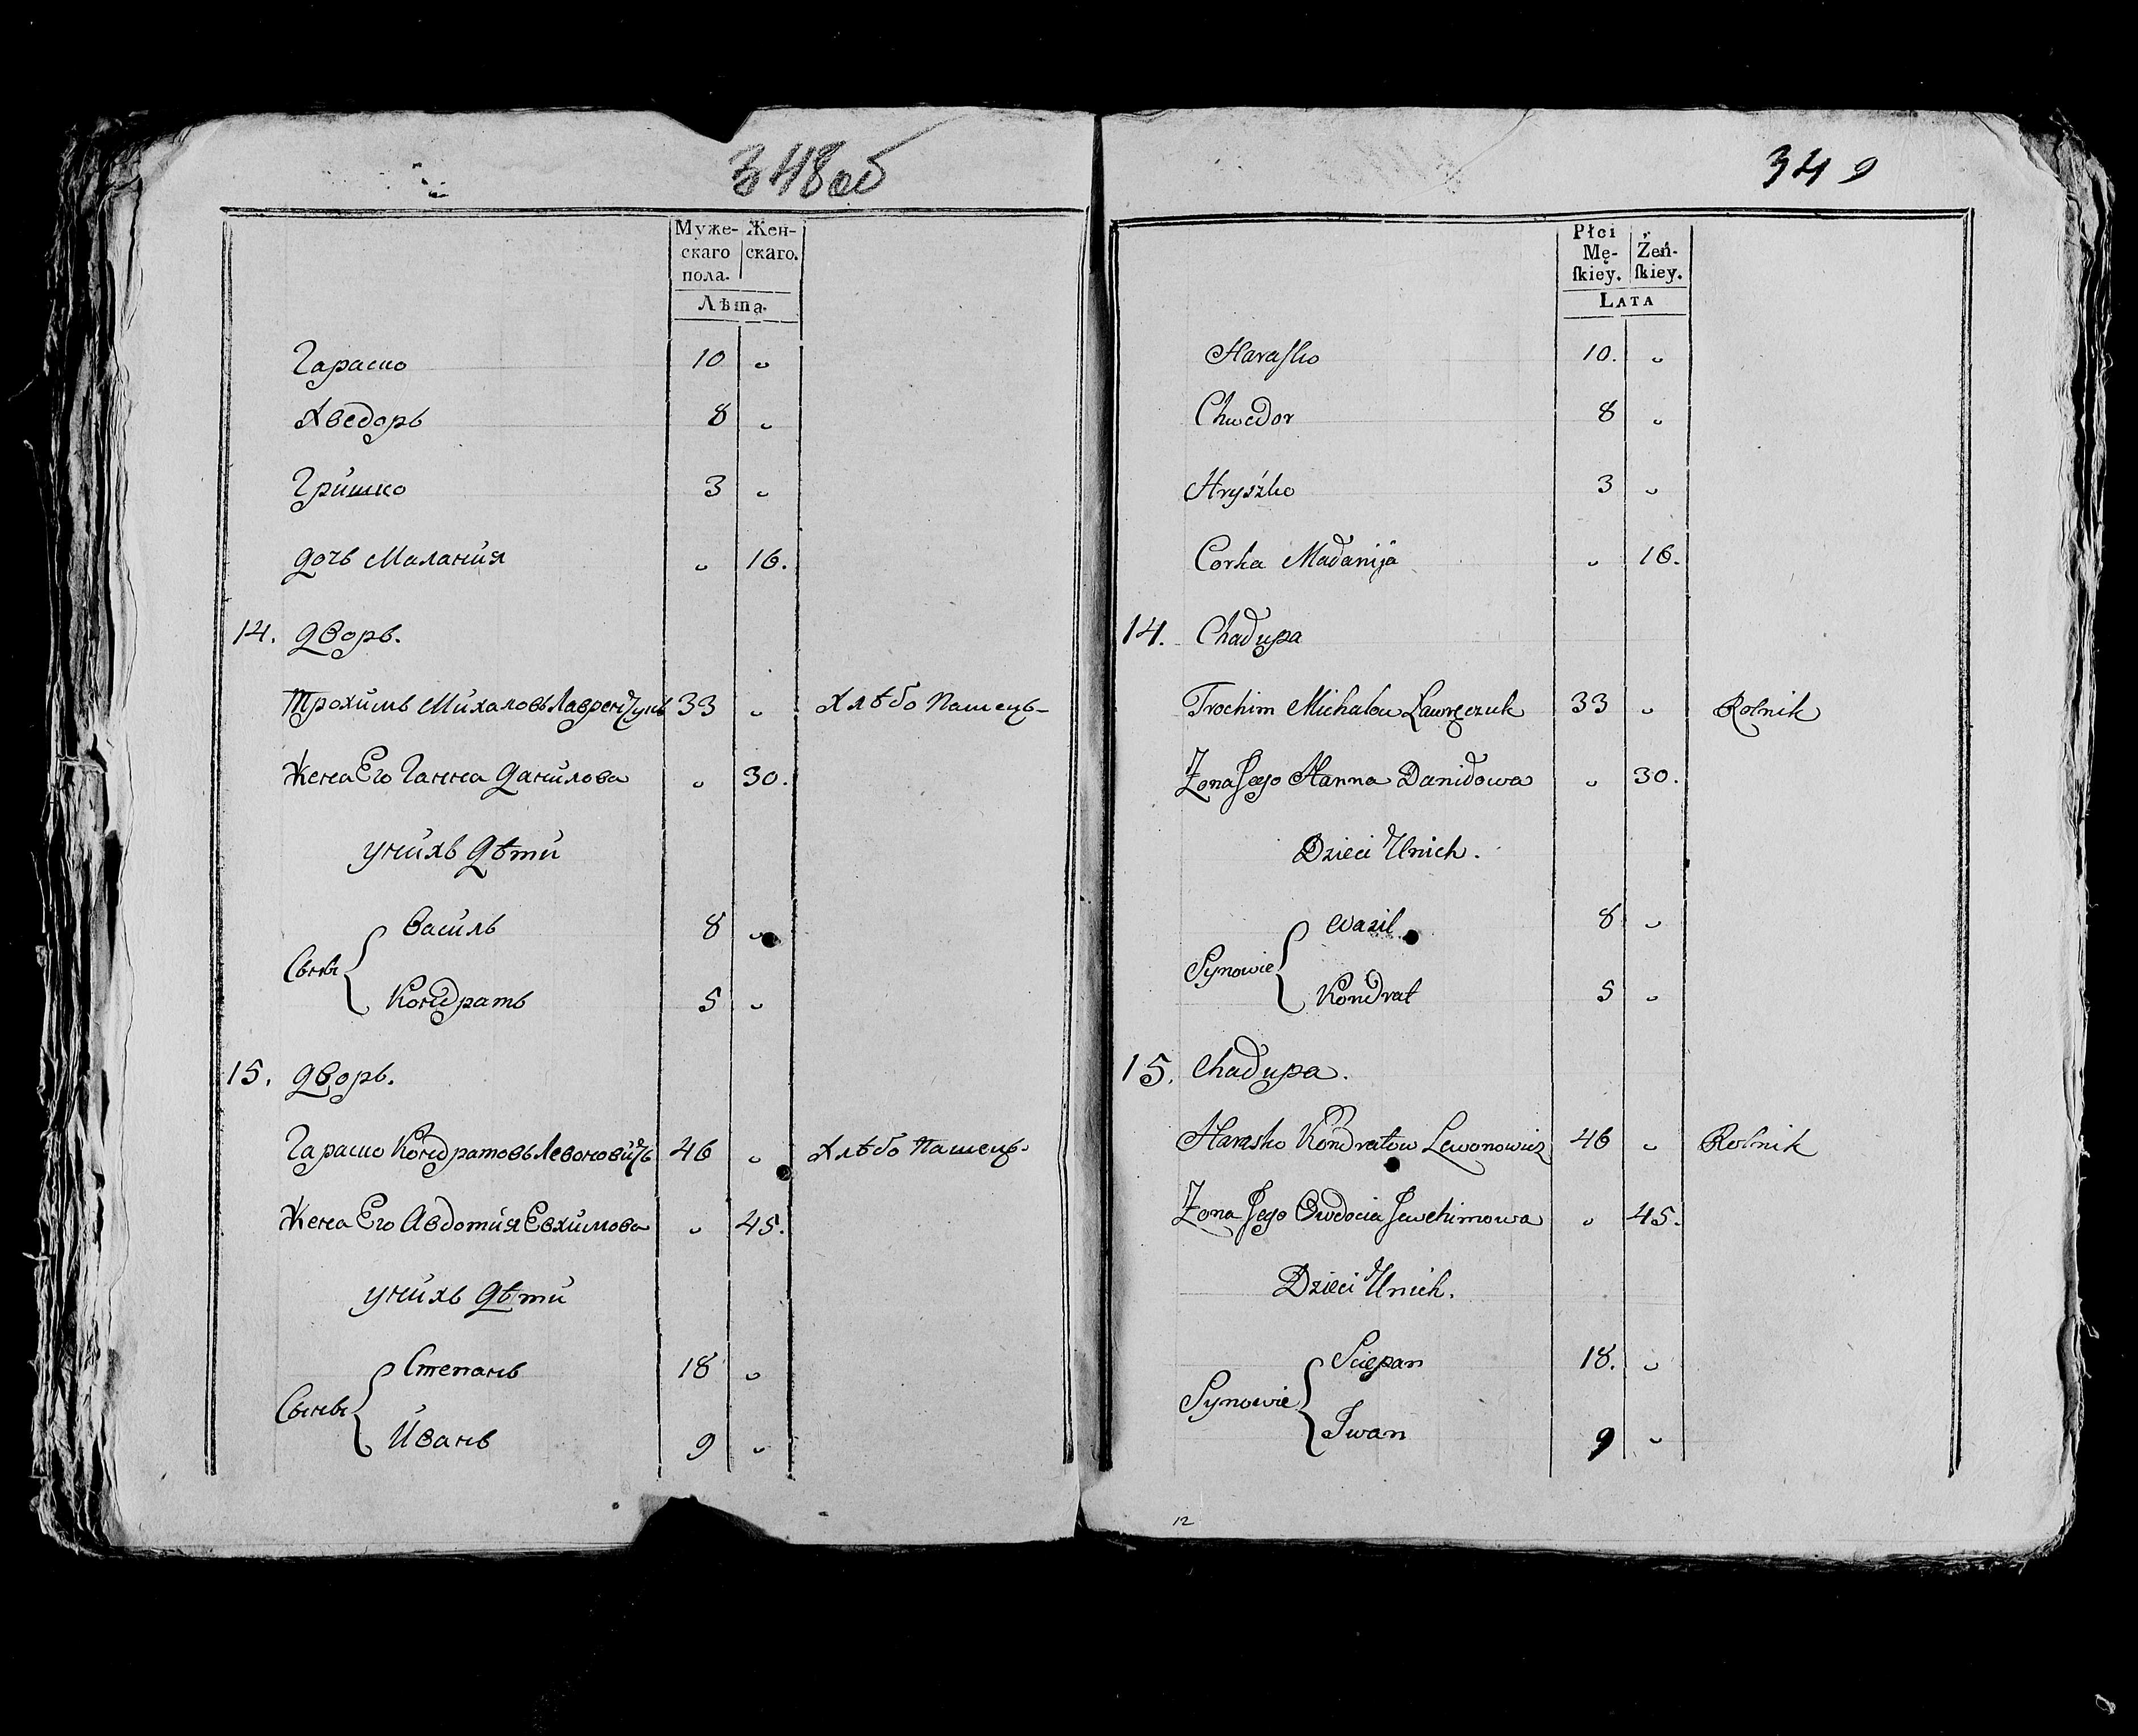 348об
Муже-
скаго
пола.
Жен-
скаго.
Лѣта.
Гарасно 10 „
Хведоръ 8 „
Гришко 3 „
дочь Малания „ 16.
14. дворъ.
Трохимъ Михаловъ Лавренчукъ 33 „ Хлѣбо Пашецъ
Жена Его Ганна Данилова „ 30.
у нихъ дѣти
Василь 8 „
Сыны
Кондратъ 5 „
15. дворъ.
Гараско Кондратовъ Левоновичъ 46 „ Хлѣбо Пашецъ
Жена Его Авдотия Евхимова „ 45.
у нихъ дѣти
Степанъ 18 „
Сыны
Иванъ 9 „
349
Płci
Mę-
ſkiey.
Żeń-
ſkiey.
LATA
Haraſko 10. „
Chwedor 8 „
Hryszko 3 „
Corka Małanija „ 16.
14. Chałupa
Trochim Michałow Lawręczuk 33 „ Rolnik
Zona Jego Hanna Daniłowa „ 30.
Dzieci Unich.
Wasil 8 „
Synowie
Kondrat 5 „
15. Chałupa.
Harasko Kondratow Lewonowicz 46 „ Rolnik
Zona Jego Owdocia Jewchimowa „ 45.
Dzieci Unich.
Sciepan 18. „
Synowie
Iwan 9 „
12